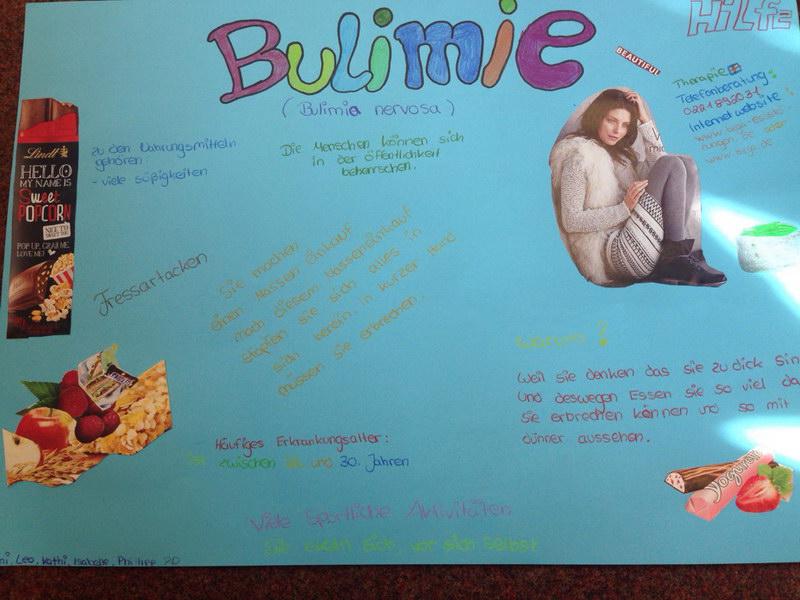 Bulimie
(Bulimia nervosa)
HiLfe
BEAUTIFUL!
Therapie
Telefonberatung:
0221 892031
Internetwebsite:
zu den Nahrungsmitteln
gehören
- viele süßigkeiten
Die Menschen können sich
in der öffentlichkeit
beherrschen.
Lindt
HELLO
MY NAME IS
Sweet
POPCORN
NICE TO
SWEET YOU
POP UP, GRAB ME
LOVE ME!
Fressartacken
Sie machen
einen Massen einkauf
nach diesem Masseneinkauf
stopfen sie sich alles in
sich herein. In kurzer Hand
müssen sie erbrechen.
Warum?
Weil sie denken das sie zu dick sin
Und deswegen Essen sie so viel da
Sie erbrechen können und so mit
dünner aussehen.
Häufiges Erkrankungsalter:
ist zwischen und 30. Jahren
Yogurette
Viele Sportliche Aktivitäten
Sie ekeln sich vor sich selbst
Leo, Kathi, Isabelle, Philipp